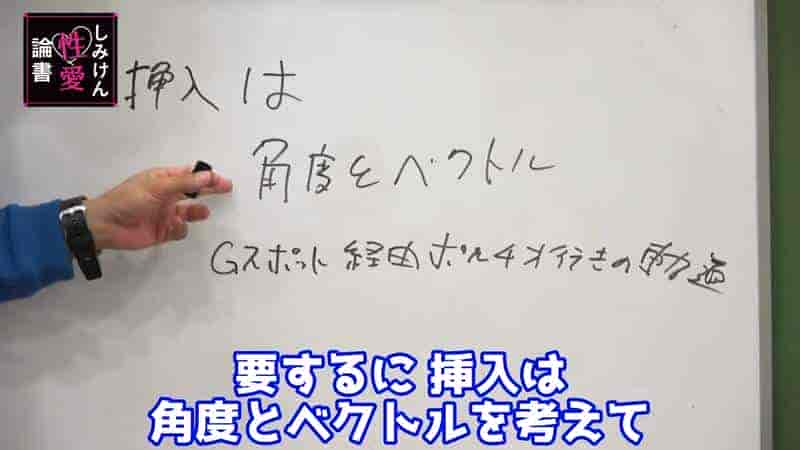 しみけん
性愛
論書
挿入は
角度とベクトル
Gスポット経由ポルチオ行きの
要するに 挿入は
角度とベクトルを考えて